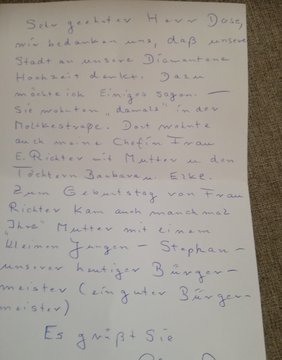 Sehr geehrter Herr Dose,
wir bedanken uns, daß unsere
Stadt an unsere Diamantene
Hochzeit denkt. Dazu
möchte ich Einiges sagen. —
Sie wohnten "damals" in der
Moltkestraße. Dort wohnte
auch meine Chefin Frau
E. Richter mit Mutter u. den
Töchtern Barbara u. Elke.
Zum Geburtstag von Frau
Richter kam auch manchmal
"Ihre" Mutter mit einem
kleinen Jungen — Stephan —
unserer heutiger Bürger-
meister (ein guter Bürger-
meister)
Es grüßt Sie